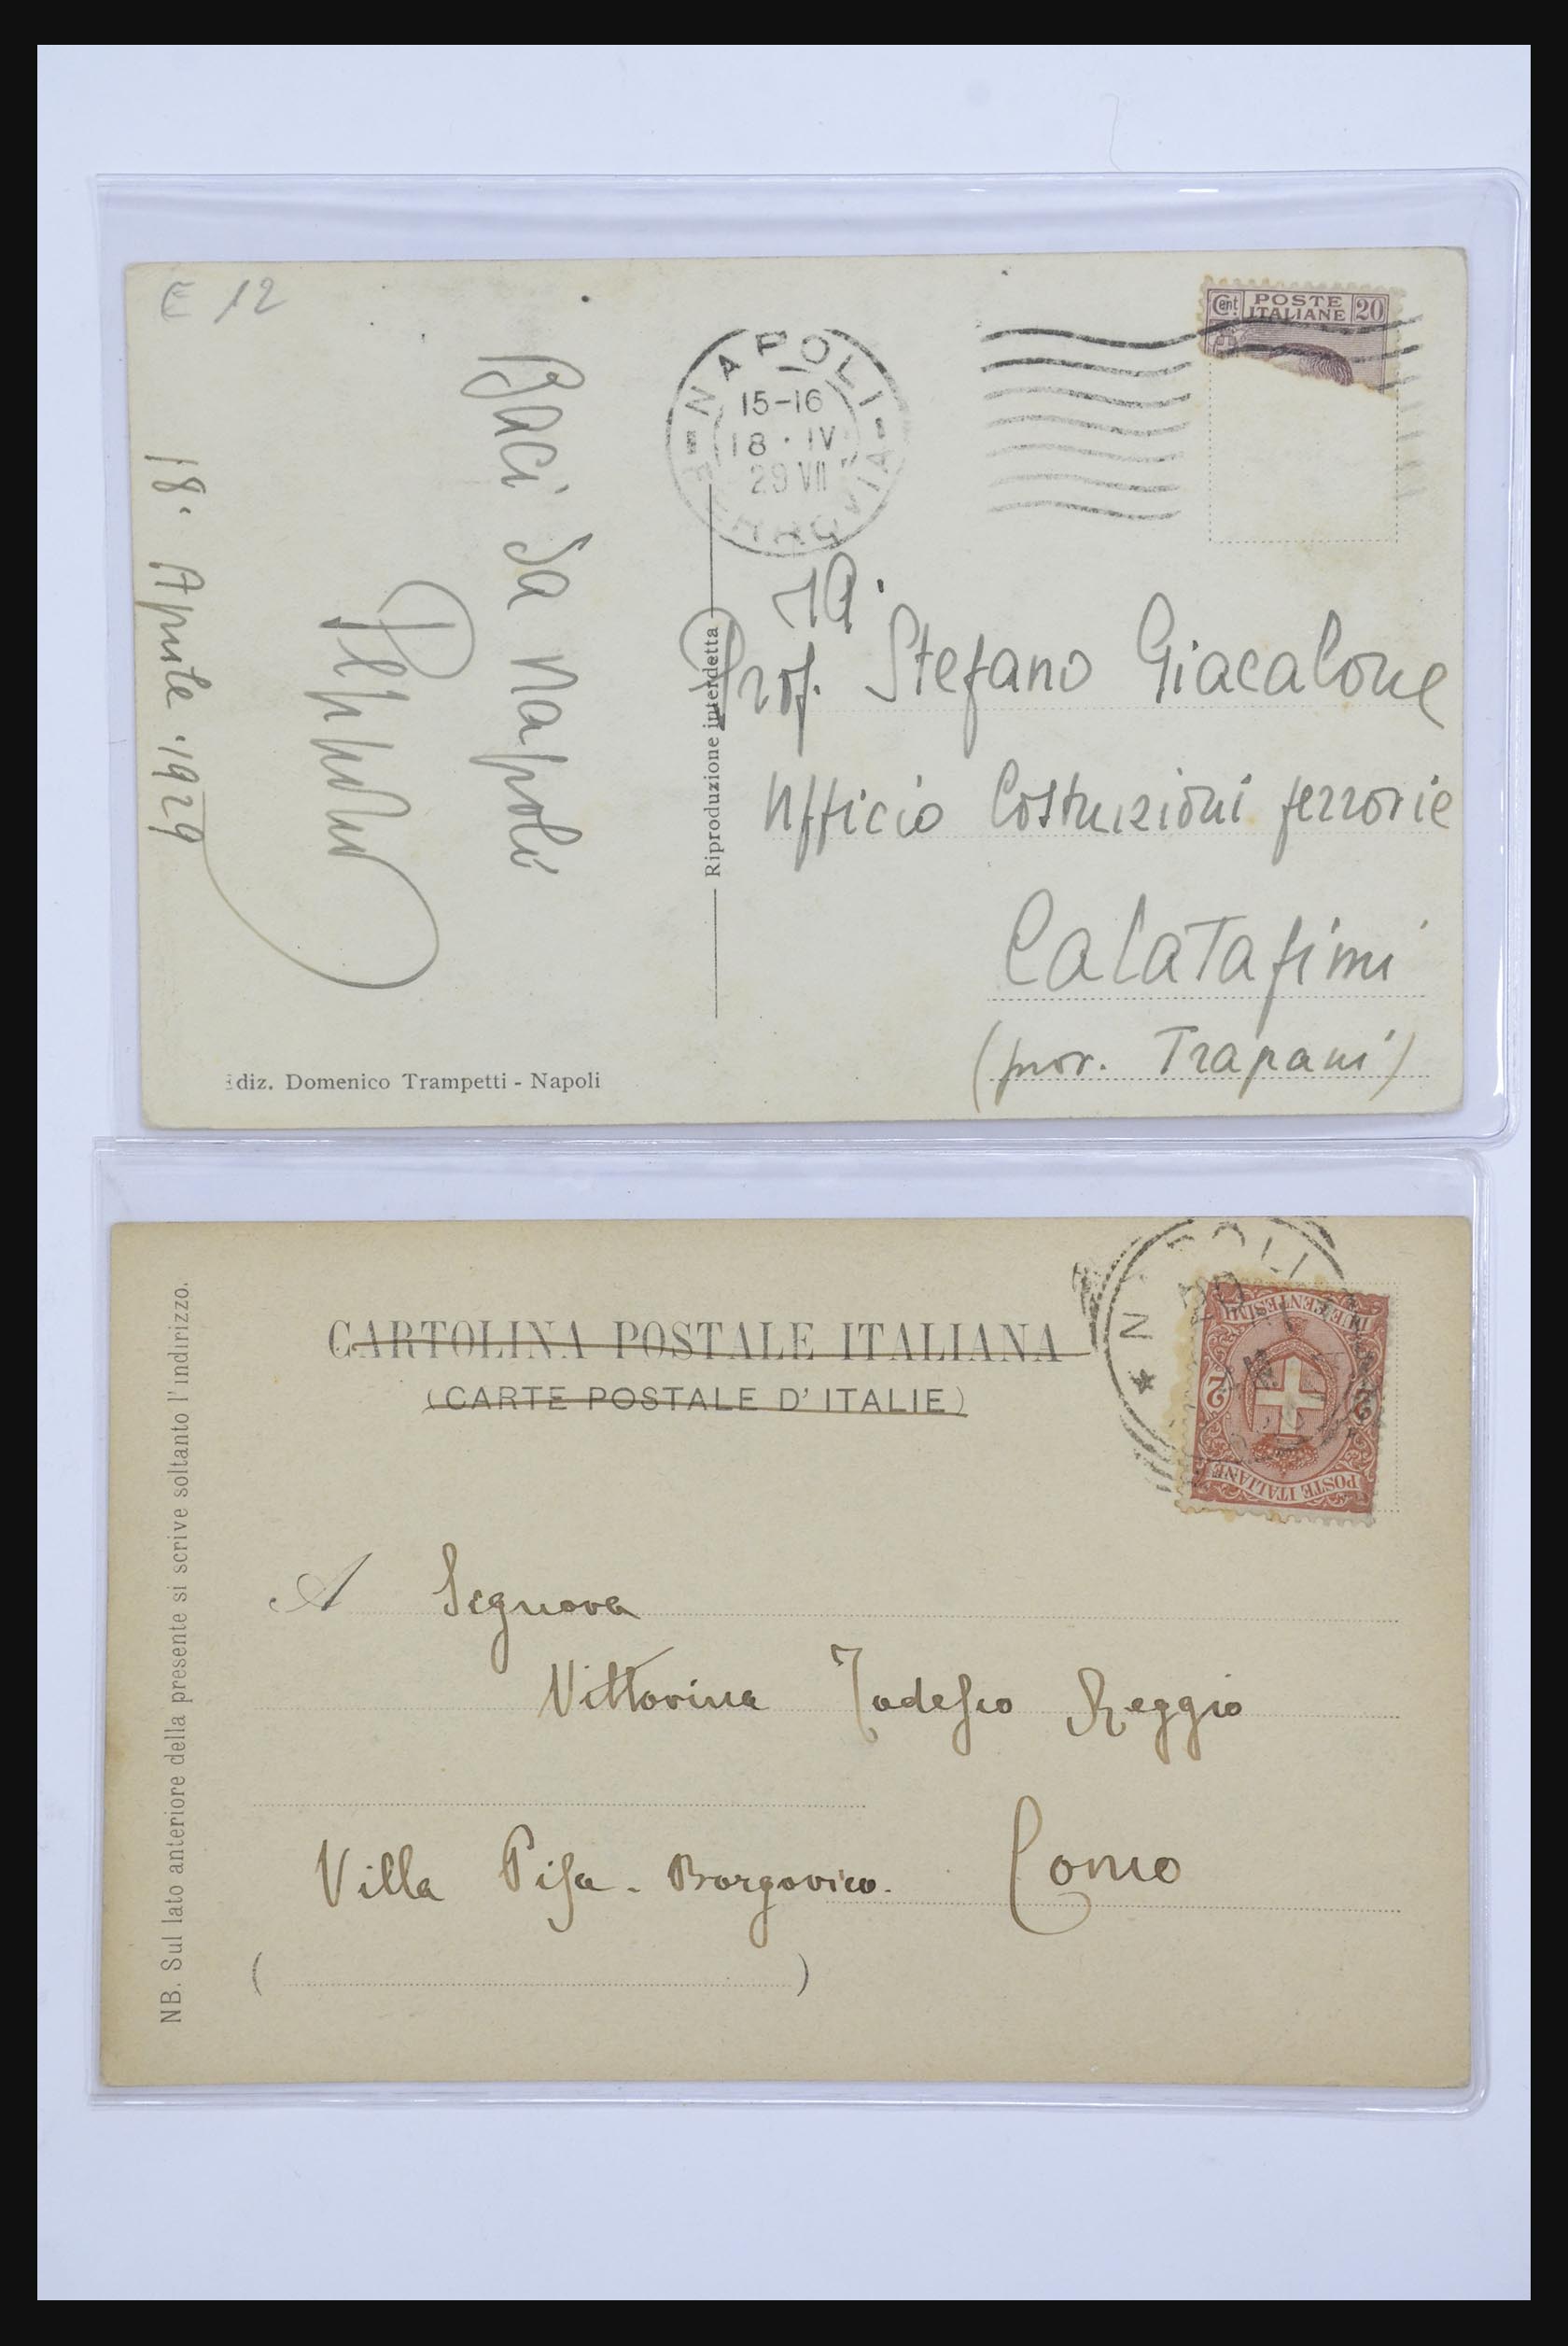 E 12
Cent POSTE ITALIANE 20
NAPOLI
15-16
18 · IV
29 VII
FERROVIA
Baci da Napoli
Peppino
18. Aprile 1929
Riproduzione interdetta
Prof. Stefano Giacalone
Ufficio Costruzioni ferrovie
Calatafimi
(prov. Trapani)
Ediz. Domenico Trampetti - Napoli
NAPOLI
DUE CENTESIMI
2 2
POSTE ITALIANE
CARTOLINA POSTALE ITALIANA
(CARTE POSTALE D' ITALIE)
NB. Sul lato anteriore della presente si scrive soltanto l'indirizzo.
A Signora
Vittorina Tedesco Reggio
Villa Pisa - Borgovico. Como